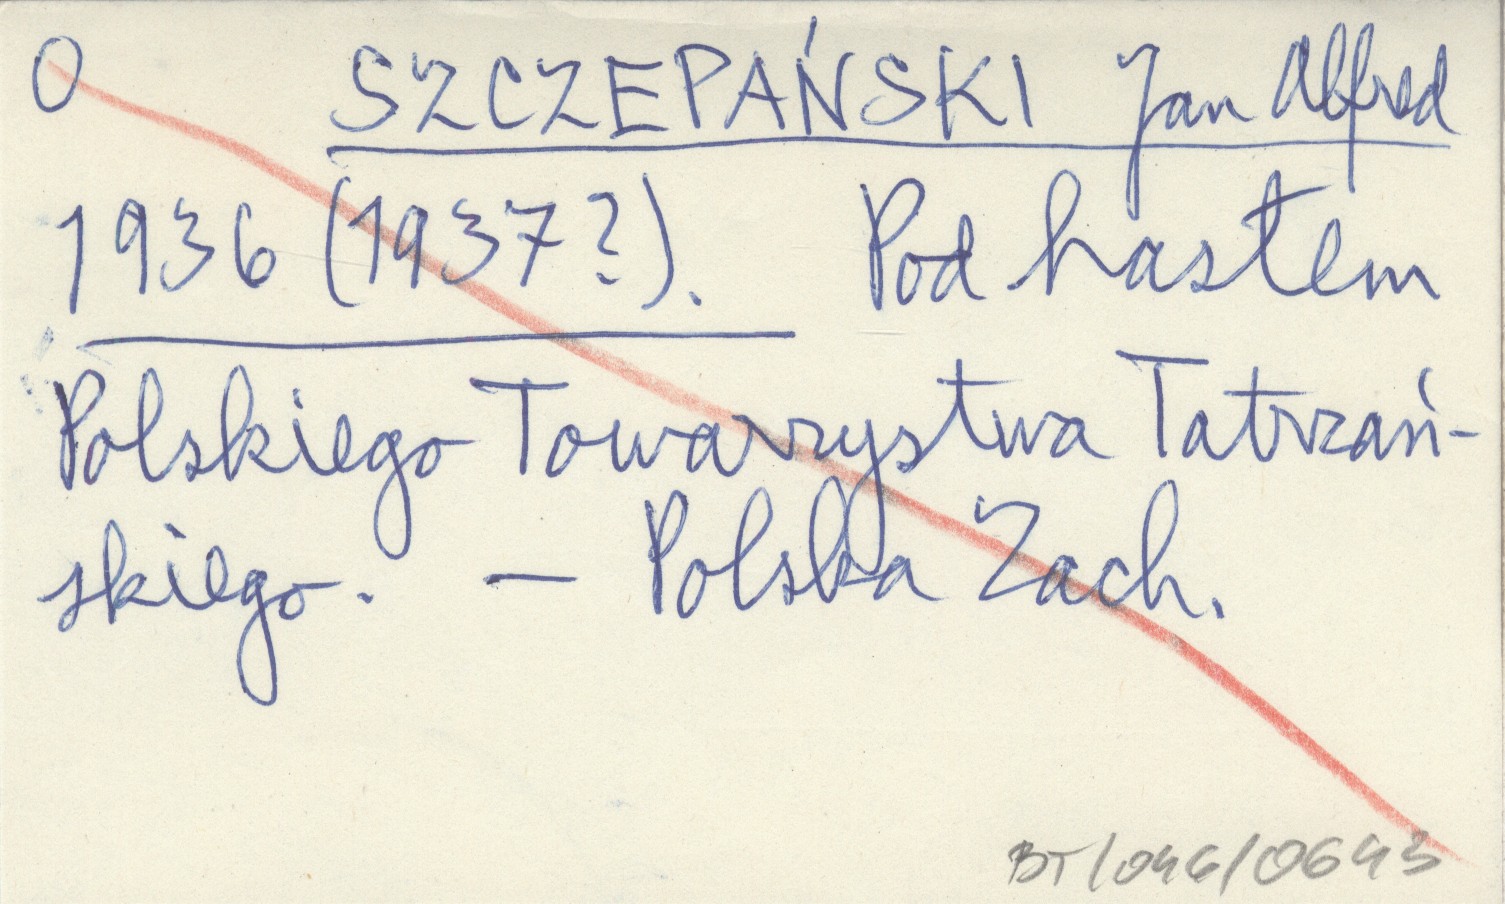 O SZCZEPAŃSKI Jan Alfred
1936 (1937?). Pod hastem
Polskiego Towarzystwa Tatrzań-
skiego. — Polska Zach.
BT/046/0643